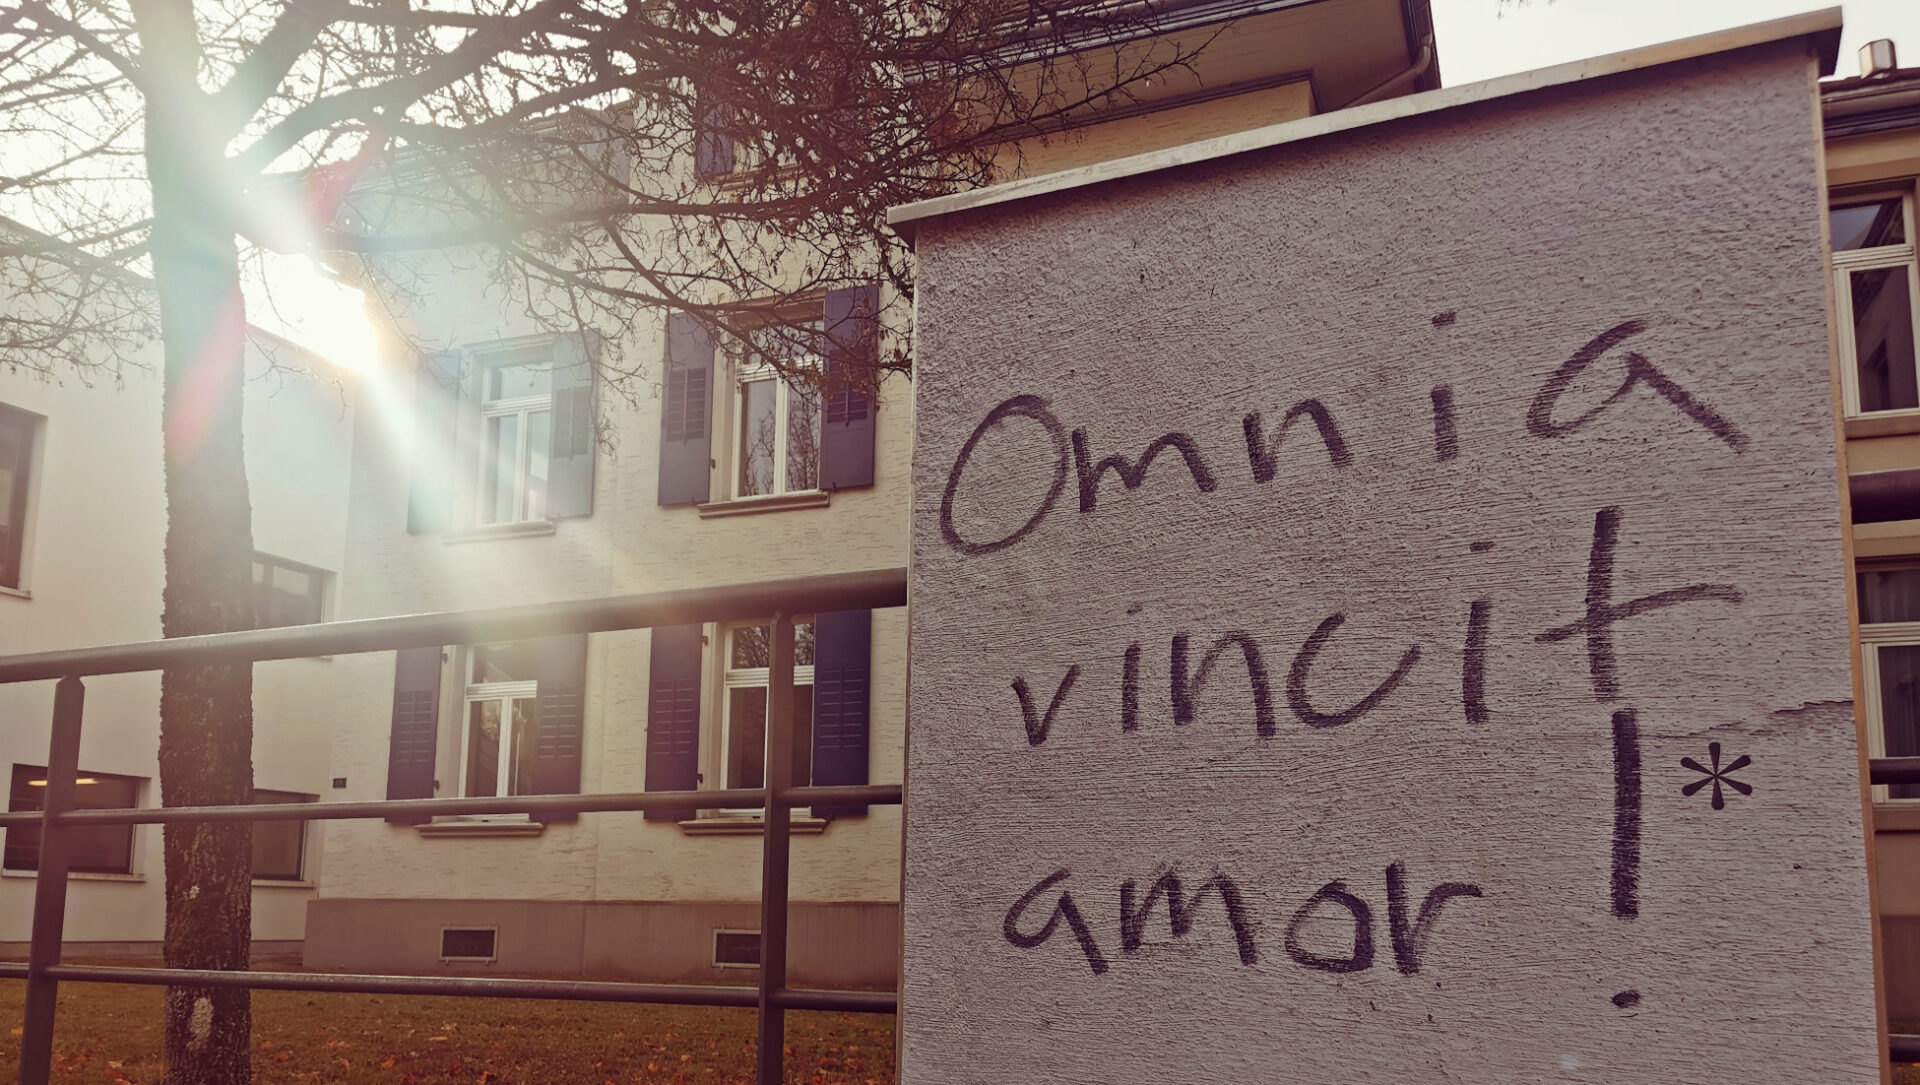 Omnia
vincit
amor!*